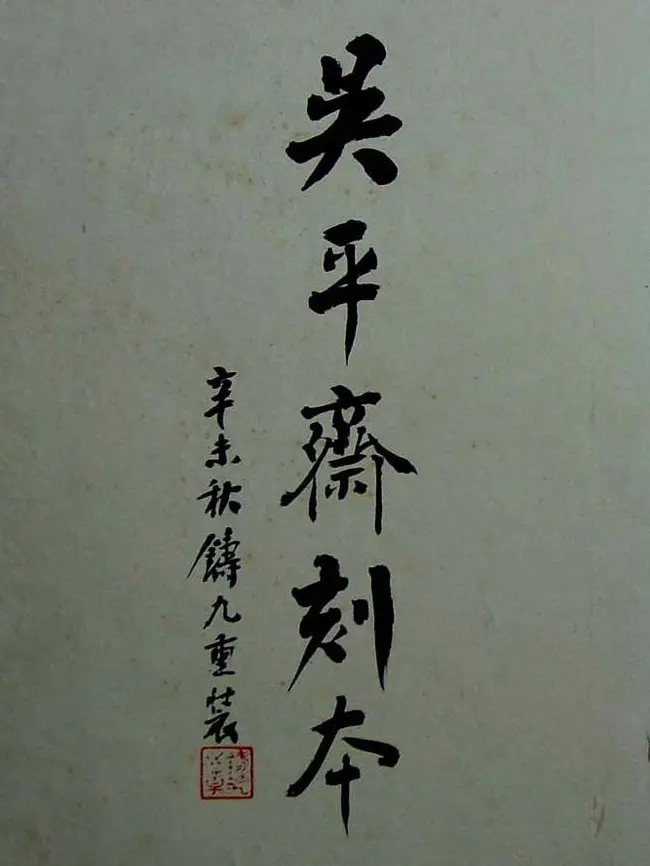 吴平齋刻本
辛未秋鑄九重裝